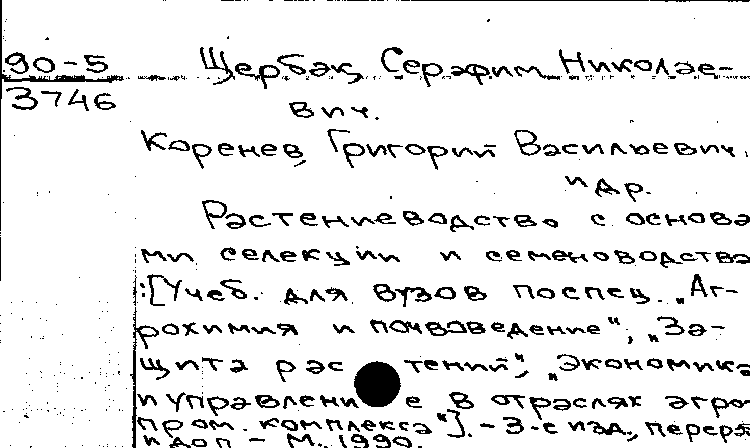 90-5
3746
Щербак, Серафим Николае-
вич.
Коренев, Григорий Васильевич.
и др.
Растениеводство с основа
ми селекции и семеноводства
:[Учеб. для вузов по спец. "Аг-
рохимия и почвоведение", "За-
щита растений", "Экономика
и управление в отраслях агро
пром. комплекса"]. - 3-е изд., перераб
и доп - М., 1990.